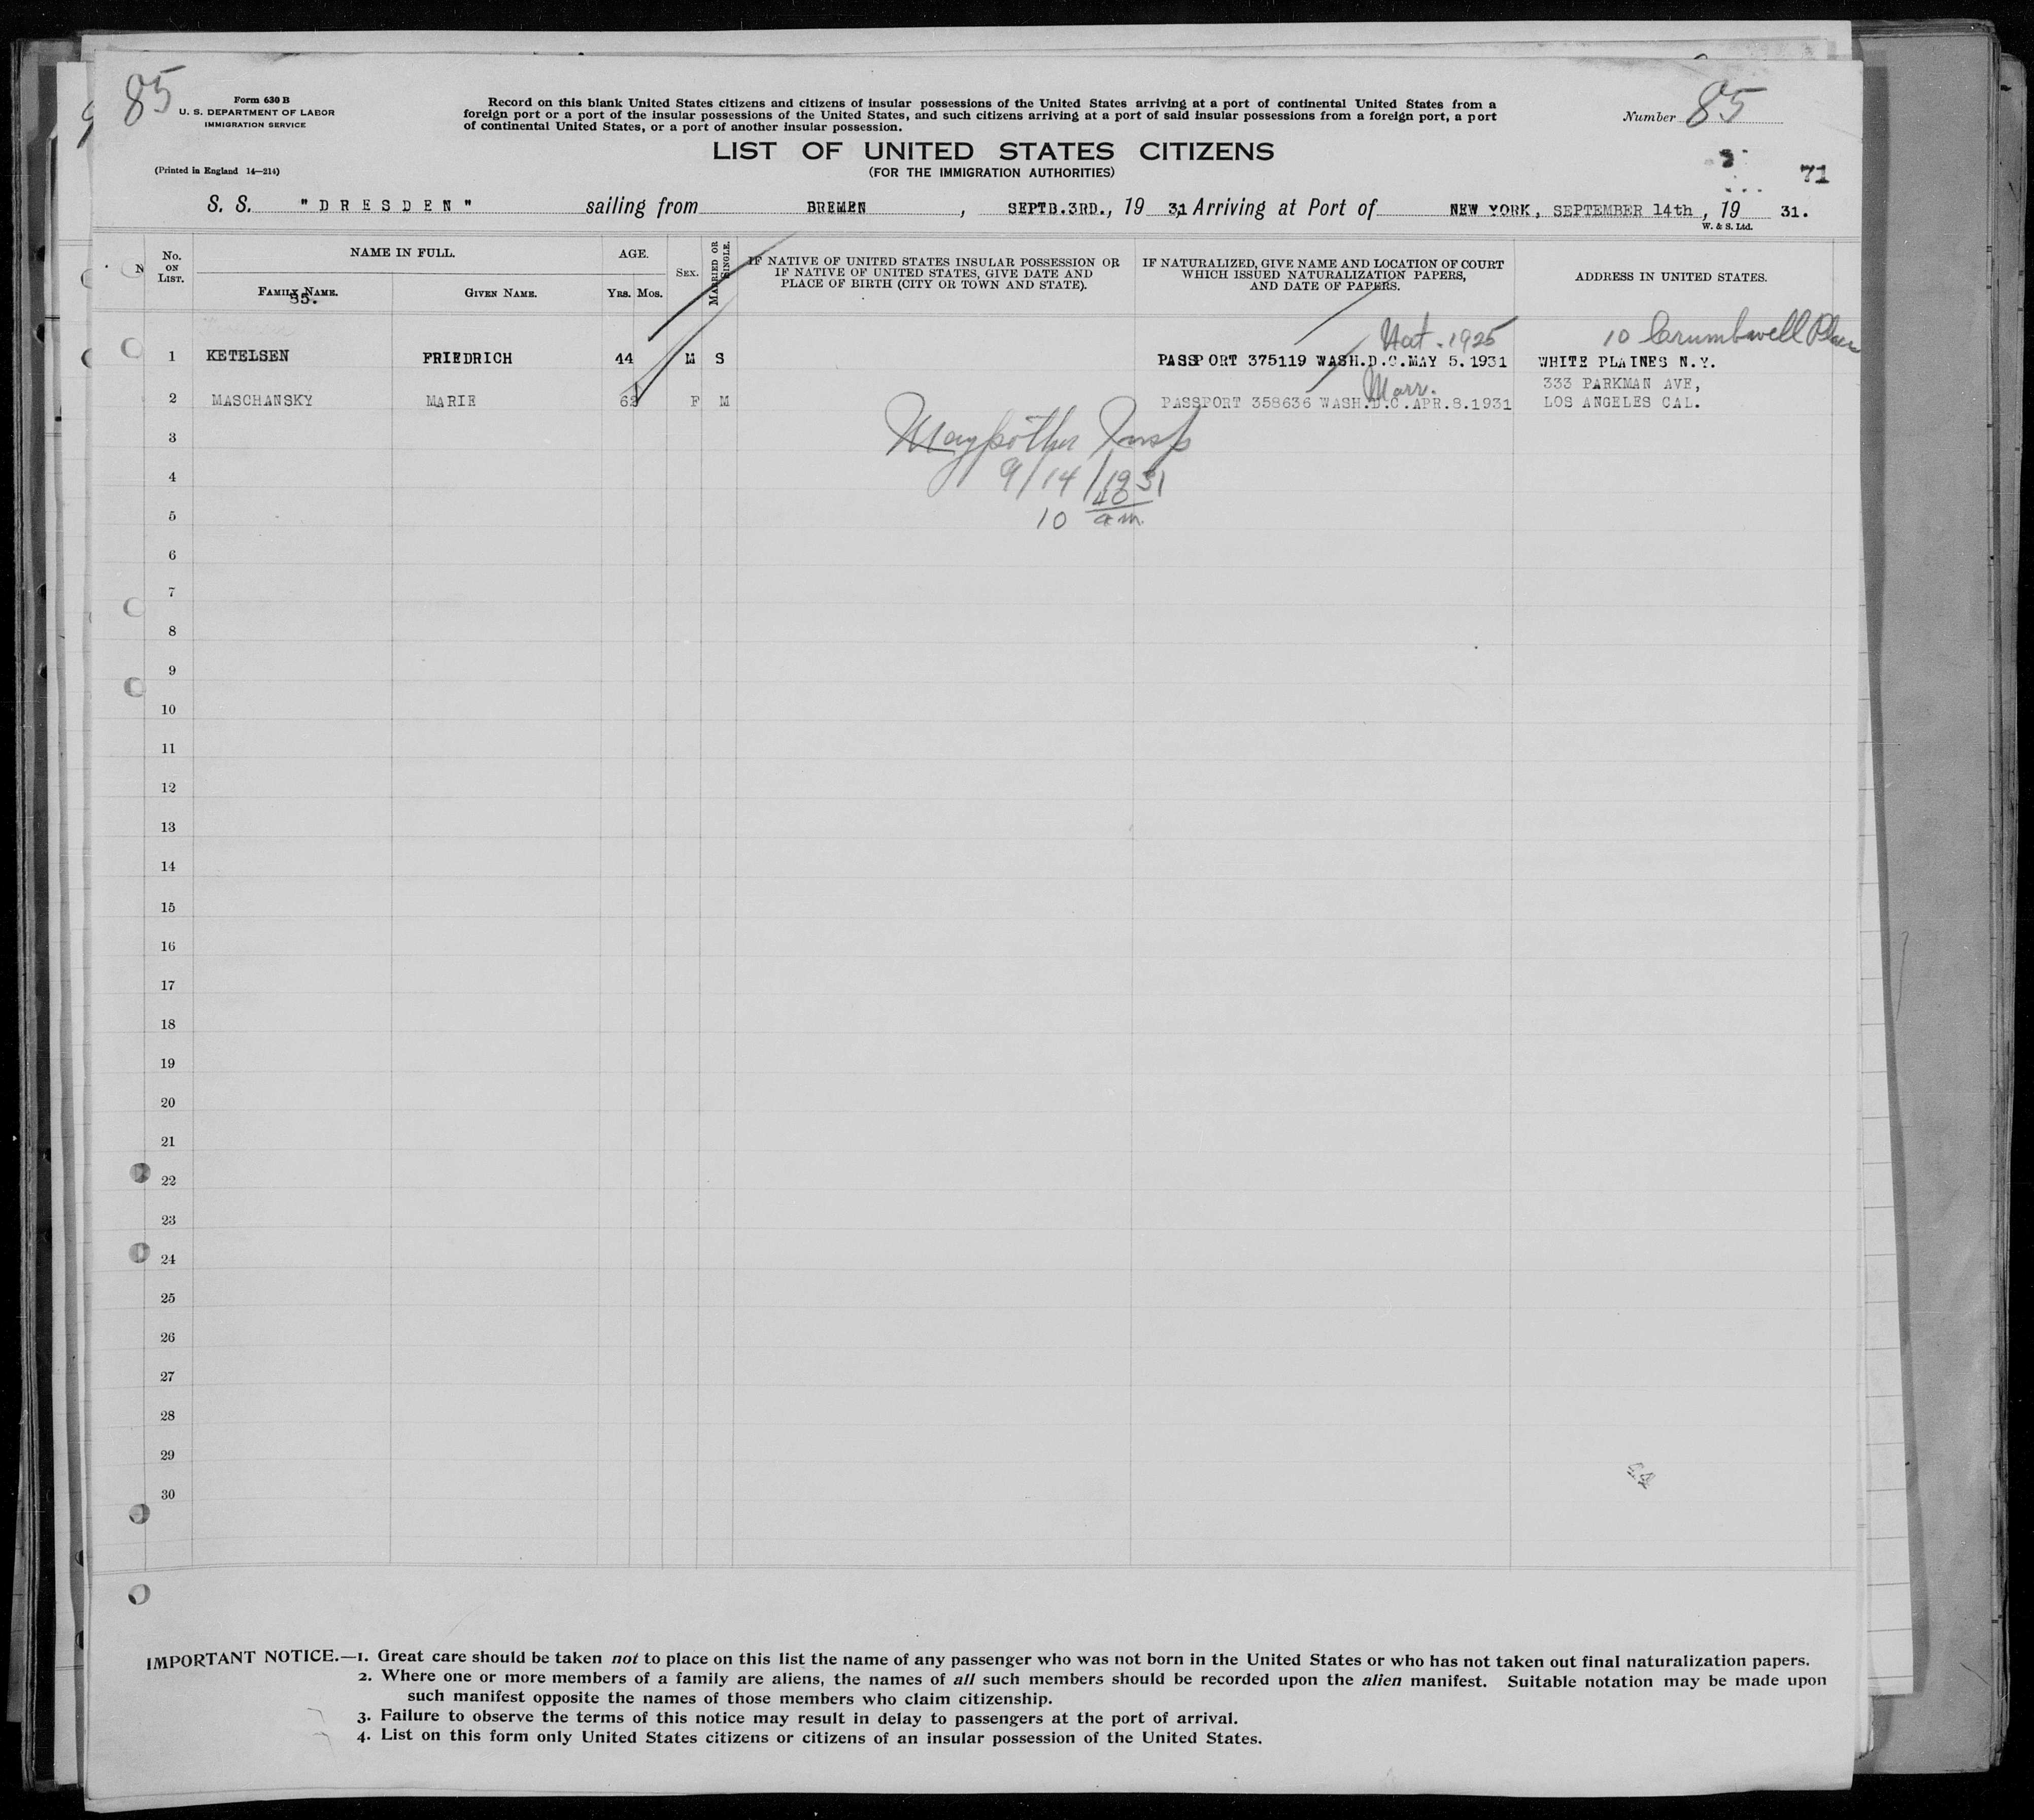 85
Form 630 B
U. S. DEPARTMENT OF LABOR
IMMIGRATION SERVICE
(Printed in England 14—214)
Record on this blank United States citizens and citizens of insular possessions of the United States arriving at a port of continental United States from a
foreign port or a port of the insular possessions of the United States, and such citizens arriving at a port of said insular possessions from a foreign port, a port
of continental United States, or a port of another insular possession.
Number 85
LIST OF UNITED STATES CITIZENS
(FOR THE IMMIGRATION AUTHORITIES)
71
S. S. "DRESDEN" sailing from BREMEN, SEPTB.3RD., 19 31 Arriving at Port of NEW YORK, SEPTEMBER 14th, 19 31.
W. & S. Ltd.
No. ON LIST.
NAME IN FULL.
FAMILY NAME.
35.
GIVEN NAME.
AGE.
YRS. MOS.
SEX.
MARRIED OR SINGLE.
IF NATIVE OF UNITED STATES INSULAR POSSESSION OR
IF NATIVE OF UNITED STATES, GIVE DATE AND
PLACE OF BIRTH (CITY OR TOWN AND STATE).
IF NATURALIZED, GIVE NAME AND LOCATION OF COURT
WHICH ISSUED NATURALIZATION PAPERS,
AND DATE OF PAPERS.
ADDRESS IN UNITED STATES.
Nat. 1925 10
1 KETELSEN FRIEDRICH 44 M S PASSPORT 375119 WASH.D.C.MAY 5.1931 WHITE PLAINES N.Y.
Marr. 333 PARKMAN AVE,
2 MASCHANSKY MARIE 62 F M PASSPORT 358636 WASH.D.C.APR.8.1931 LOS ANGELES CAL.
3
Maypother Insp
4
9/14/1931
5
10 40 am.
6
7
8
9
10
11
12
13
14
15
16
17
18
19
20
21
22
23
24
25
26
27
28
29
30
IMPORTANT NOTICE.—1. Great care should be taken not to place on this list the name of any passenger who was not born in the United States or who has not taken out final naturalization papers.
2. Where one or more members of a family are aliens, the names of all such members should be recorded upon the alien manifest. Suitable notation may be made upon
such manifest opposite the names of those members who claim citizenship.
3. Failure to observe the terms of this notice may result in delay to passengers at the port of arrival.
4. List on this form only United States citizens or citizens of an insular possession of the United States.